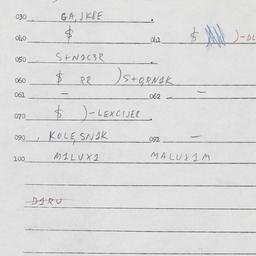 030 GA, JKBE
040 $ 041 $ )-DL
050 S+N2C3R
060 $ RR )S+QRN1K
061 – 062 –
070 $ )-LEXCIJER
090 , KULE, SN1K 091 –
100 M1LUX1 MALUX1M
D1RU